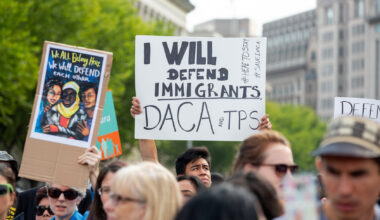 We All Belong Here
We Will DEFEND
each other
I WILL
DEFEND
IMMIGRANTS
DACA AND TPS
#HERETOSTAY
DEFEND